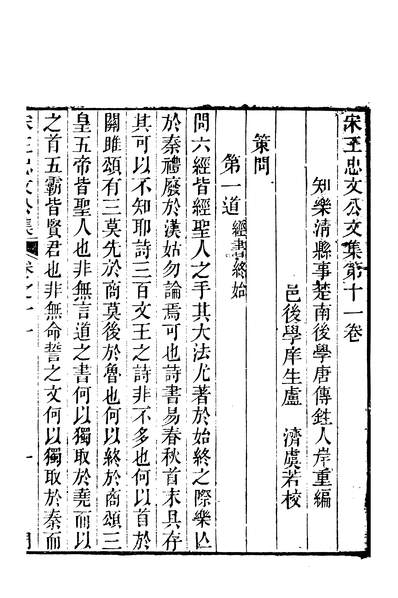 宋王忠文公文集第十一卷
知樂清縣事楚南後學唐傳鉎人岸重編
邑後學庠生盧　濟虞若校
策問
第一道　經書終始
問六經皆經聖人之手其大法尤著於始終之際樂亾
於秦禮廢於漢姑勿論焉可也詩書易春秋首末具存
其可以不知耶詩三百文王之詩非不多也何以首於
關雎頌有三莫先於商莫後於魯也何以終於商頌三
皇五帝皆聖人也非無言道之書何以獨取於堯而以
之首五霸皆賢君也非無命誓之文何以獨取於秦而
宋王忠文公集
卷之十一
一